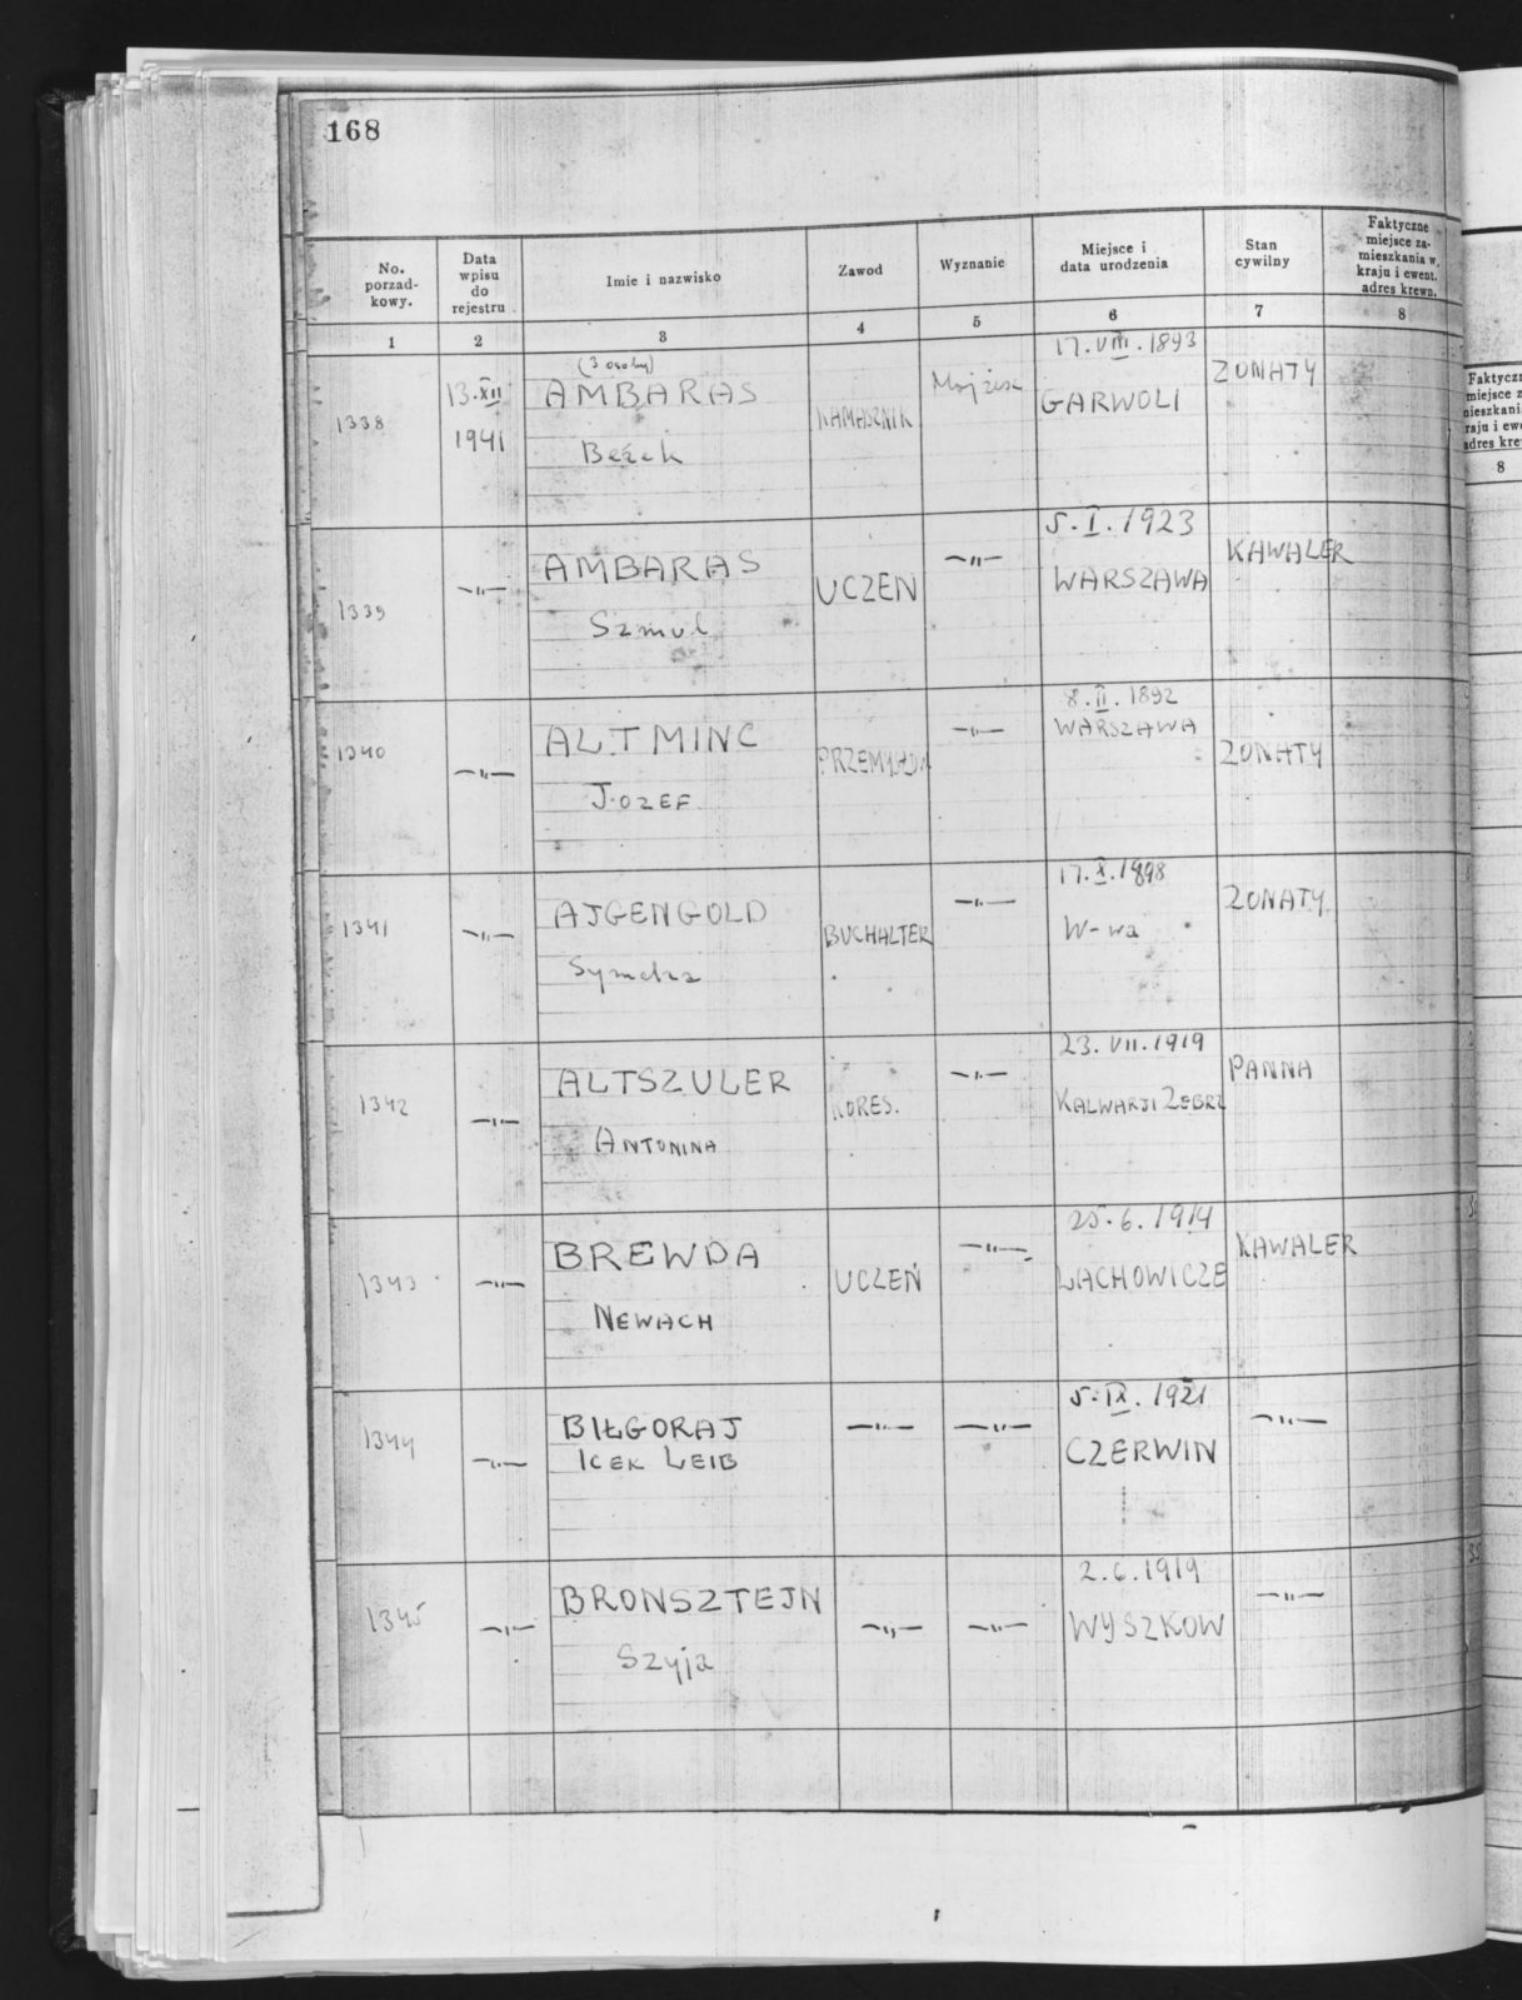 168
No. porzad-kowy.
Data wpisu do rejestru
Imie i nazwisko
Zawod
Wyznanie
Miejsce i data urodzenia
Stan cywilny
Faktyczne miejsce za-mieszkania w. kraju i ewent. adres krewn.
1 2 3 4 5 6 7 8
1338
13.XII 1941
(3 osoby)
AMBARAS
Bezek
KAMASZNIK
Mojżesz
17.VIII.1893
GARWOLI
ZONATY
1339
—"—
AMBARAS
Szmul
UCZEN
—"—
5.I.1923
WARSZAWA
KAWALER
1340
—"—
ALTMINC
JOZEF
—"—
8.II.1892
WARSZAWA
ZONATY
1341
—"—
AJGENGOLD
Symcha
BUCHALTER
—"—
17.X.1898
W-wa
ZONATY
1342
—"—
ALTSZULER
ANTONINA
KORES.
—"—
23.VII.1919
KALWARJI ZEBRZ
PANNA
1343
—"—
BREWDA
NEWACH
UCZEŃ
—"—
25.6.1914
LACHOWICZE
KAWALER
1344
—"—
BIŁGORAJ
ICEK LEIB
—"—
—"—
5.IX.1921
CZERWIN
—"—
1345
—"—
BRONSZTEJN
Szyja
—"—
—"—
2.6.1919
WYSZKOW
—"—
8